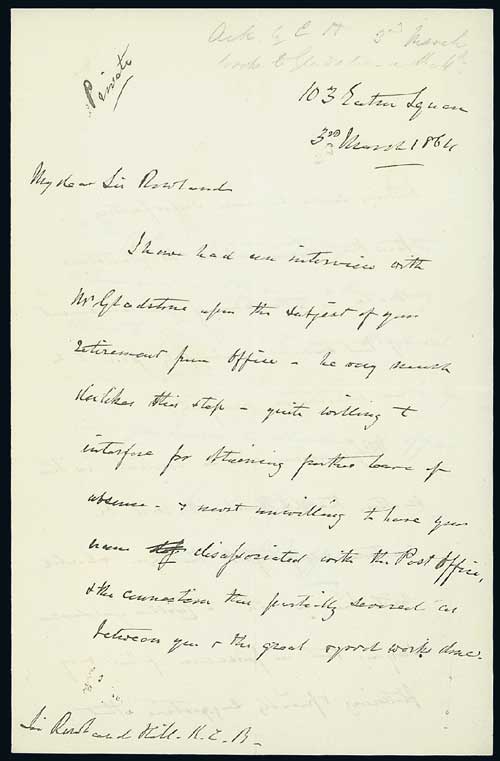 Ack. by E H 3rd March
Private
103 Eaton Square
3rd March 1864
My dear Sir Rowland
I have had an interview with
Mr Gladstone upon the subject of your
retirement from office - he very much
dislikes this step - quite willing to
interfere for obtaining further leave of
absence - & most unwilling to have your
name disassociated with the Post Office,
& the connection thus partially severed as
between you & the great & good work done.
Sir Rowland Hill. K. C. B.